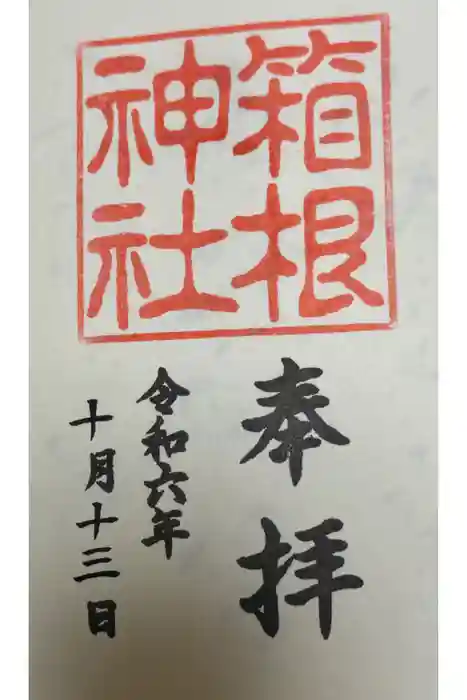 箱根
神社
奉拝
令和六年
十月十三日